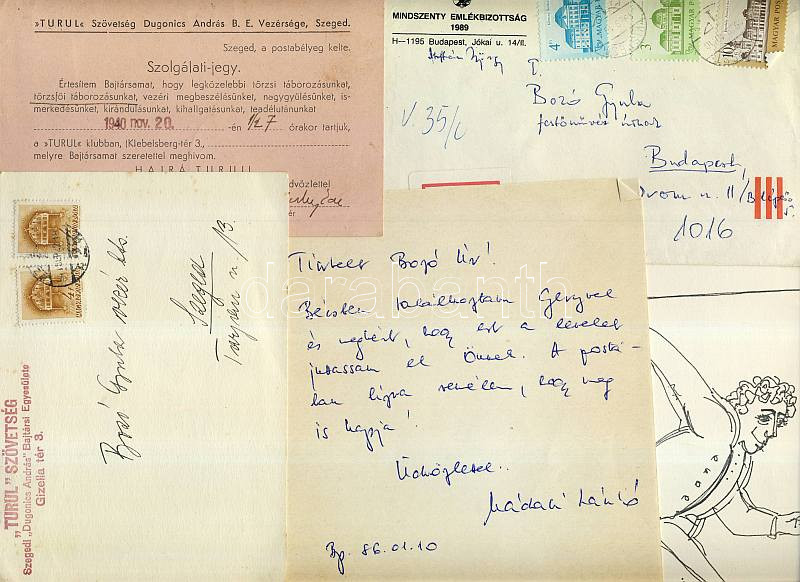 »TURUL« Szövetség Dugonics András B. E. Vezérsége, Szeged.
Szeged, a postabélyeg kelte.
Szolgálati-jegy.
Értesitem Bajtársamat, hogy legközelebbi törzsi táborozásunkat,
törzsfői táborozásunkat, vezéri megbeszélésünket, nagygyűlésünket, is-
merkedésünket, kirándulásunkat, kihallgatásunkat, teadélutánunkat
1940 NOV. 20. -én 1/27 órakor tartjuk,
a »TURUL« klubban, (Klebelsberg-tér 3.,
melyre Bajtársamat szeretettel meghivom.
HAJRÁ TURUL!
dvözlettel
ér
MINDSZENTY EMLÉKBIZOTTSÁG
1989
H—1195 Budapest, Jókai u. 14/II.
T.
Bozó Gyula
festőművész úrnak
Budapest,
u. II/
1016
V. 35/c
4
MAGYAR POSTA
3
MAGYAR POSTA
10
MAGYAR POSTA
Bozó Gyula
Szeged
u. 13.
"TURUL" SZÖVETSÉG
Szegedi „Dugonics András" Bajtársi Egyesülete
Gizella tér 3.
Tisztelt Bozó Úr!
Bécsben találkoztam
és megkért, hogy ezt a levelet
juttassam el Önnek. A postá-
ban bízva remélem, hogy meg
is kapja!
Üdvözlettel..
László
Bp. 86.01.10
darabanth